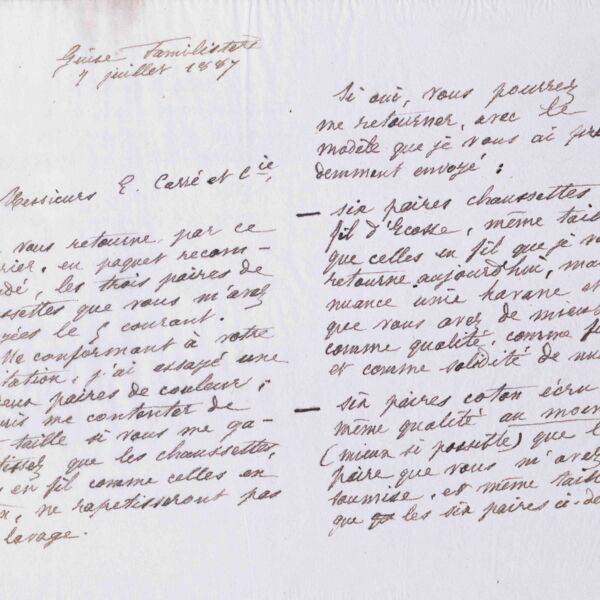 Guise Familistère
7 juillet 1887
Messieurs E. Carré et Cie,
vous retourne par ce
rier, en paquet recom-
dé, les trois paires de
ssettes que vous m'avez
yées le 5 courant.
Me conformant à votre
itation, j'ai essayé une
eux paires de couleur;
uis me contenter de
taille si vous me ga-
tissez que les chaussettes,
en fil comme celles en
n, ne rapetisseront pas
lavage.
Si oui, vous pourrez
me retourner, avec le
modèle que je vous ai pré
demment envoyé :
— six paires chaussettes
fil d'Ecosse, même tail
que celles en fil que je v
retourne aujourd'hui, mai
nuance unie havane et
que vous avez de mieux
comme qualité, comme fi
et comme solidité de nu
— six paires coton écru
même qualité au moin
(mieux si possible) que l
paire que vous m'avez
soumise, et même taill
que les six paires ci-de